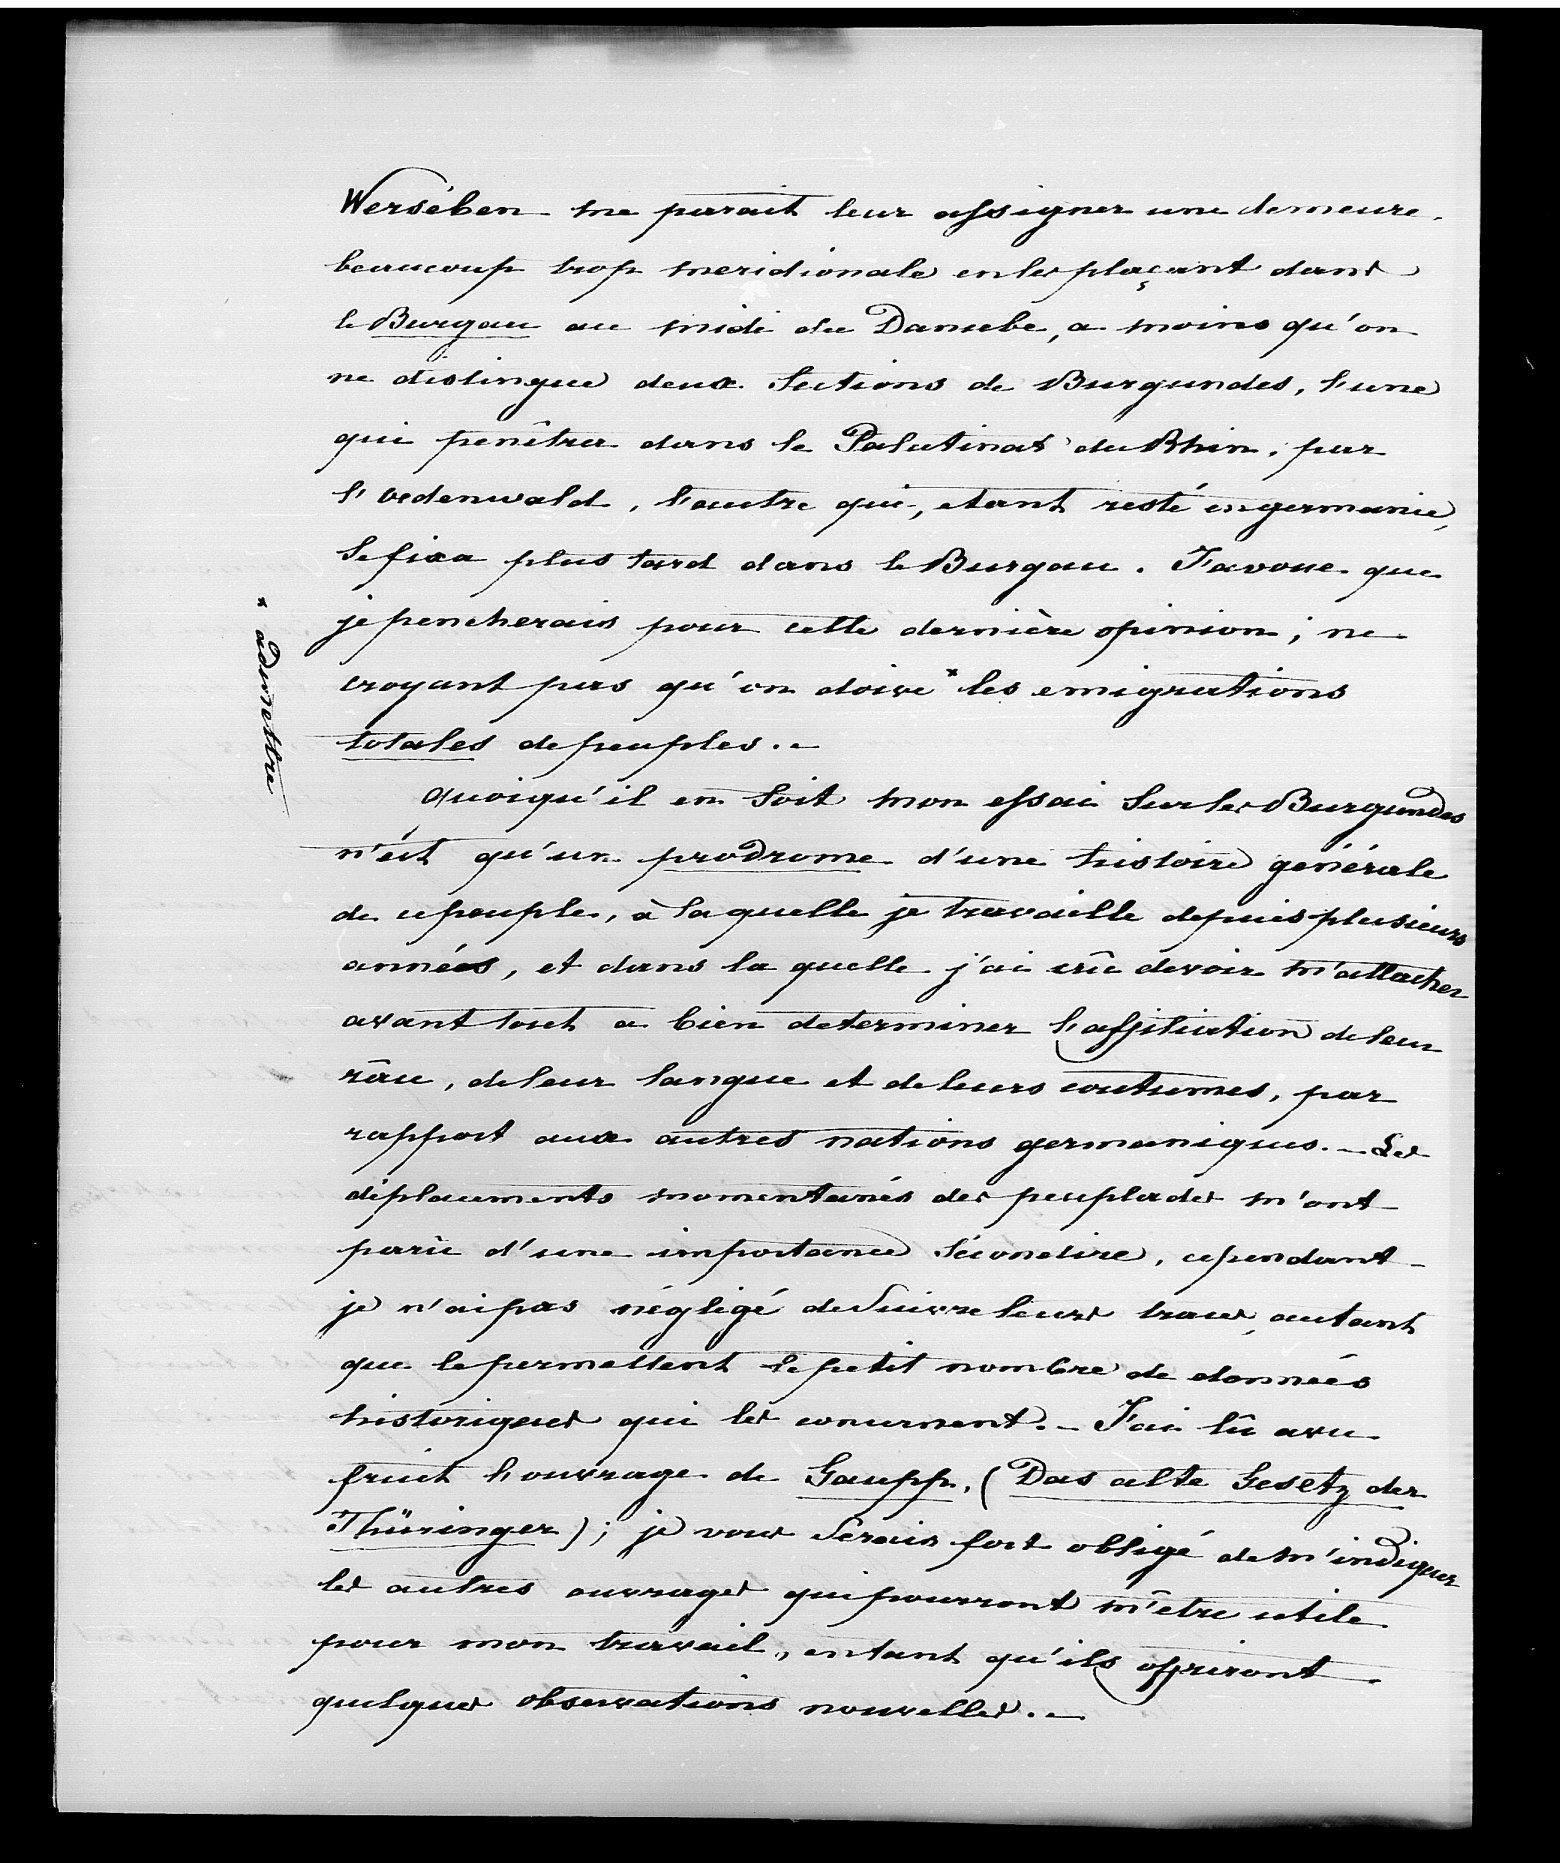 Wersében me parait leur assigner une demeure
beaucoup trop meridionale en les plaçant dans
le Burgau au midi du Danube, a moins qu'on
ne distingue deux sections de Burgundes, l'une
qui penêtra dans le Palatinat du Rhin, par
l'Oedenwald, l'autre qui, etant resté en germanie,
se fixa plus tard dans le Burgau. J'avoue que
je pencherais pour cette dernière opinion; ne
croyant pas qu'on doive * les emigrations
totales de peuples.-
* admettre
quoiqu'il en soit mon essai sur les Burgundes
n'est qu'un prodrome d'une histoire générale
de ce peuple, à laquelle je travaille depuis plusieurs
années, et dans la quelle j'ai crû devoir m'attacher
avant tout a bien determiner l'affiliation de leur
râce, de leur langue et de leurs coutumes, par
rapport aux autres nations germaniques.- Les
déplacements momentanés des peuplades m'ont
parû d'une importance sécondaire, cependant
je n'ai pas négligé de suivre leurs traces, autant
que le permettent le petit nombre de données
historiques qui les concernent.- J'ai lû avec
fruit l'ouvrage de Gaupp, (Das alte Gesetz der
Thüringer); je vous serais fort obligé de m'indiquer
les autres ouvrages qui pourront m'être utile
pour mon travail, entant qu'ils offriront
quelques observations nouvelles.-